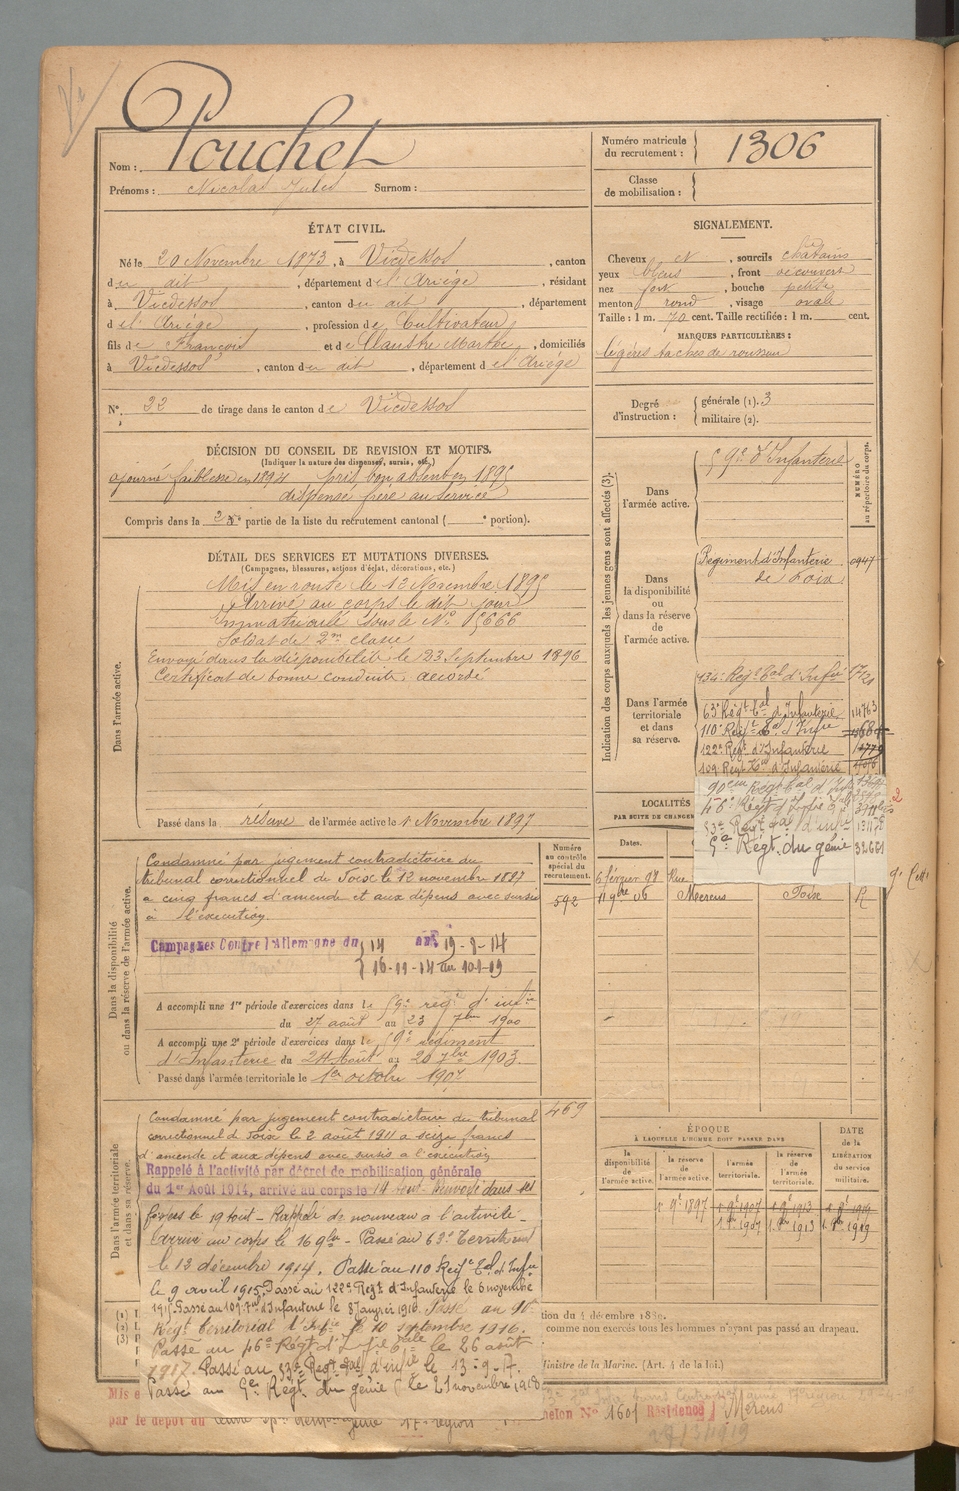 Nom : Pouchet
Prénoms : Nicolas Jules Surnom :
Numéro matricule
du recrutement : 1306
Classe
de mobilisation :
ÉTAT CIVIL.
Né le 20 Novembre 1873, à Vicdessos, canton
du dit, département de l'Ariège, résidant
à Vicdessos, canton du dit, département
de l'Ariège, profession de Cultivateur,
fils de François et de Claustre Marthe, domiciliés
à Vicdessos, canton du dit, département de l'Ariège
N° 22 de tirage dans le canton de Vicdessos
SIGNALEMENT.
Cheveux et, sourcils châtains
yeux bleus, front découvert
nez fort, bouche petite
menton rond, visage ovale
Taille : 1 m. 70 cent. Taille rectifiée : 1 m. cent.
MARQUES PARTICULIÈRES :
légères taches de rousseur
Degré
d'instruction :
générale (1). 3
militaire (2).
DÉCISION DU CONSEIL DE REVISION ET MOTIFS.
(Indiquer la nature des dispenses, sursis, etc.)
ajourné faiblesse en 1894 pris bon absent en 1895
dispensé frère au service
Compris dans la 2e partie de la liste du recrutement cantonal ( e portion).
DÉTAIL DES SERVICES ET MUTATIONS DIVERSES.
(Campagnes, blessures, actions d'éclat, décorations, etc.)
Dans l'armée active.
Mis en route le 13 Novembre 1895
Arrivé au corps le dit jour
Immatriculé sous le N° 5666
Soldat de 2me classe
Envoyé dans la disponibilité le 23 Septembre 1896
Certificat de bonne conduite accordé
Passé dans la réserve de l'armée active le 1 Novembre 1897
Indication des corps auxquels les jeunes gens sont affectés (3).
NUMÉRO
au répertoire du corps.
Dans
l'armée active.
59e d'Infanterie
Dans
la disponibilité
ou
dans la réserve
de
l'armée active.
Régiment d'Infanterie 0947
de Foix
Dans l'armée
territoriale
et dans
sa réserve.
134e Régt tal d'Infie
63e Régt tal d'Infanterie 14763
110e Régt tal d'Infie
122e Régt d'Infanterie
109 Régt tal d'Infanterie
90e Régt tal d'Infie
46e Régt d'Infie
53e Régt tal d'infie
9e Régt du génie 32661
LOCALITÉS
PAR SUITE DE CHANGE
Dates.
6 février 98
11 9bre 06 Mercus Foix R
Dans la disponibilité
ou dans la réserve de l'armée active.
Numéro
au contrôle
spécial du
recrutement.
592
Condamné par jugement contradictoire du
tribunal correctionnel de Foix le 12 novembre 1887
à cinq francs d'amende et aux dépens avec sursis
à l'exécution.
Campagnes Contre l'Allemagne du 14 au 19-8-14
16-11-14 au 10-1-19
A accompli une 1re période d'exercices dans le 59e régt d'infie
du 27 août au 23 7bre 1900
A accompli une 2e période d'exercices dans le 59e régiment
d'Infanterie du 24 Août au 20 7bre 1903.
Passé dans l'armée territoriale le 1er octobre 1907
Dans l'armée territoriale
et dans sa réserve.
469
Condamné par jugement contradictoire du tribunal
correctionnel de Foix le 2 août 1911 à seize francs
d'amende et aux dépens avec sursis à l'exécution
Rappelé à l'activité par décret de mobilisation générale
du 1er Août 1914, arrivé au corps le 14 août Renvoyé dans ses
foyers le 19 août - Rappelé de nouveau à l'activité -
Arrivé au corps le 16 9bre - Passé au 63e Territorial
le 13 décembre 1914. Passé au 110 Régt tal d'Infie
le 9 avril 1915. Passé au 122e Régt d'Infanterie le 6 novembre
1915 Passé au 109e tal d'Infanterie le 8 Janvier 1916. Passé au 90e
Régt territorial d'Infie le 10 septembre 1916.
Passé au 46e Régt d'Infie le 26 août
1917. Passé au 53e Régt tal d'infie le 13-9-17.
Passé au 9e Régt du génie le 21 novembre 1918
ÉPOQUE
À LAQUELLE L'HOMME DOIT PASSER DANS
la
disponibilité
de
l'armée active.
la
réserve
de
l'armée active.
l'armée
territoriale.
la
réserve
de
l'armée
territoriale.
DATE
de la
LIBÉRATION
du service
militaire.
1 9e 1897 1 9e 1907 1 9e 1913 1 9e 1919
1 9e 1907 1 9e 1913 1 9e 1919
tion du 4 décembre 1889.
comme non exercés tous les hommes n'ayant pas passé au drapeau.
Ministre de la Marine. (Art. 4 de la loi.)
Mis e
par le dépôt du
helon N° 1601 Résidence Mercus
27/3/1919